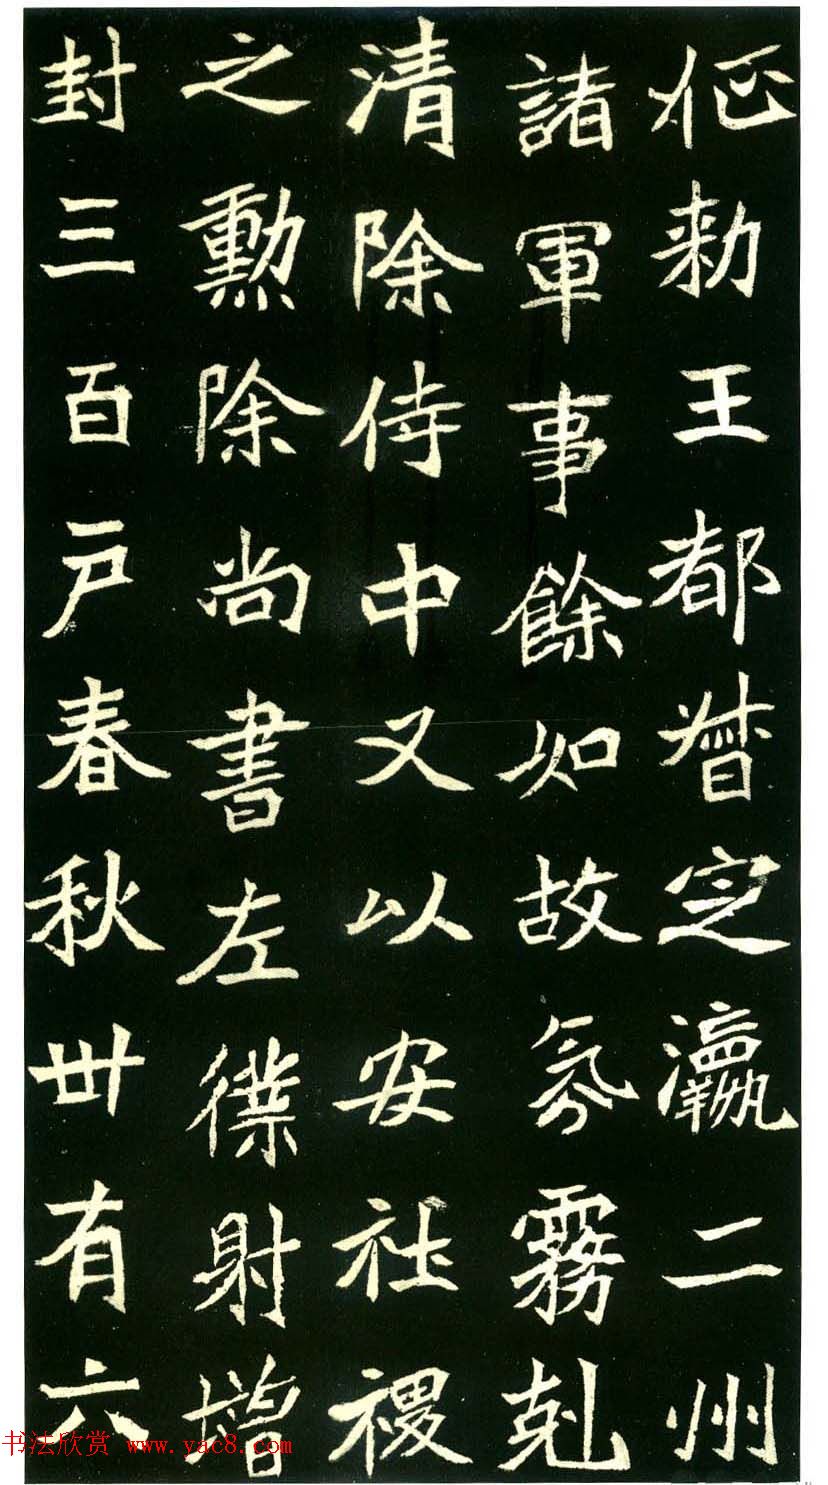 勑王都督定瀛二州
諸軍事餘如故氛霧剋
清除侍中又以安社稷
之勳除尚書左僕射增
封三百戶春秋卅有六
书法欣赏 www.yac8.com